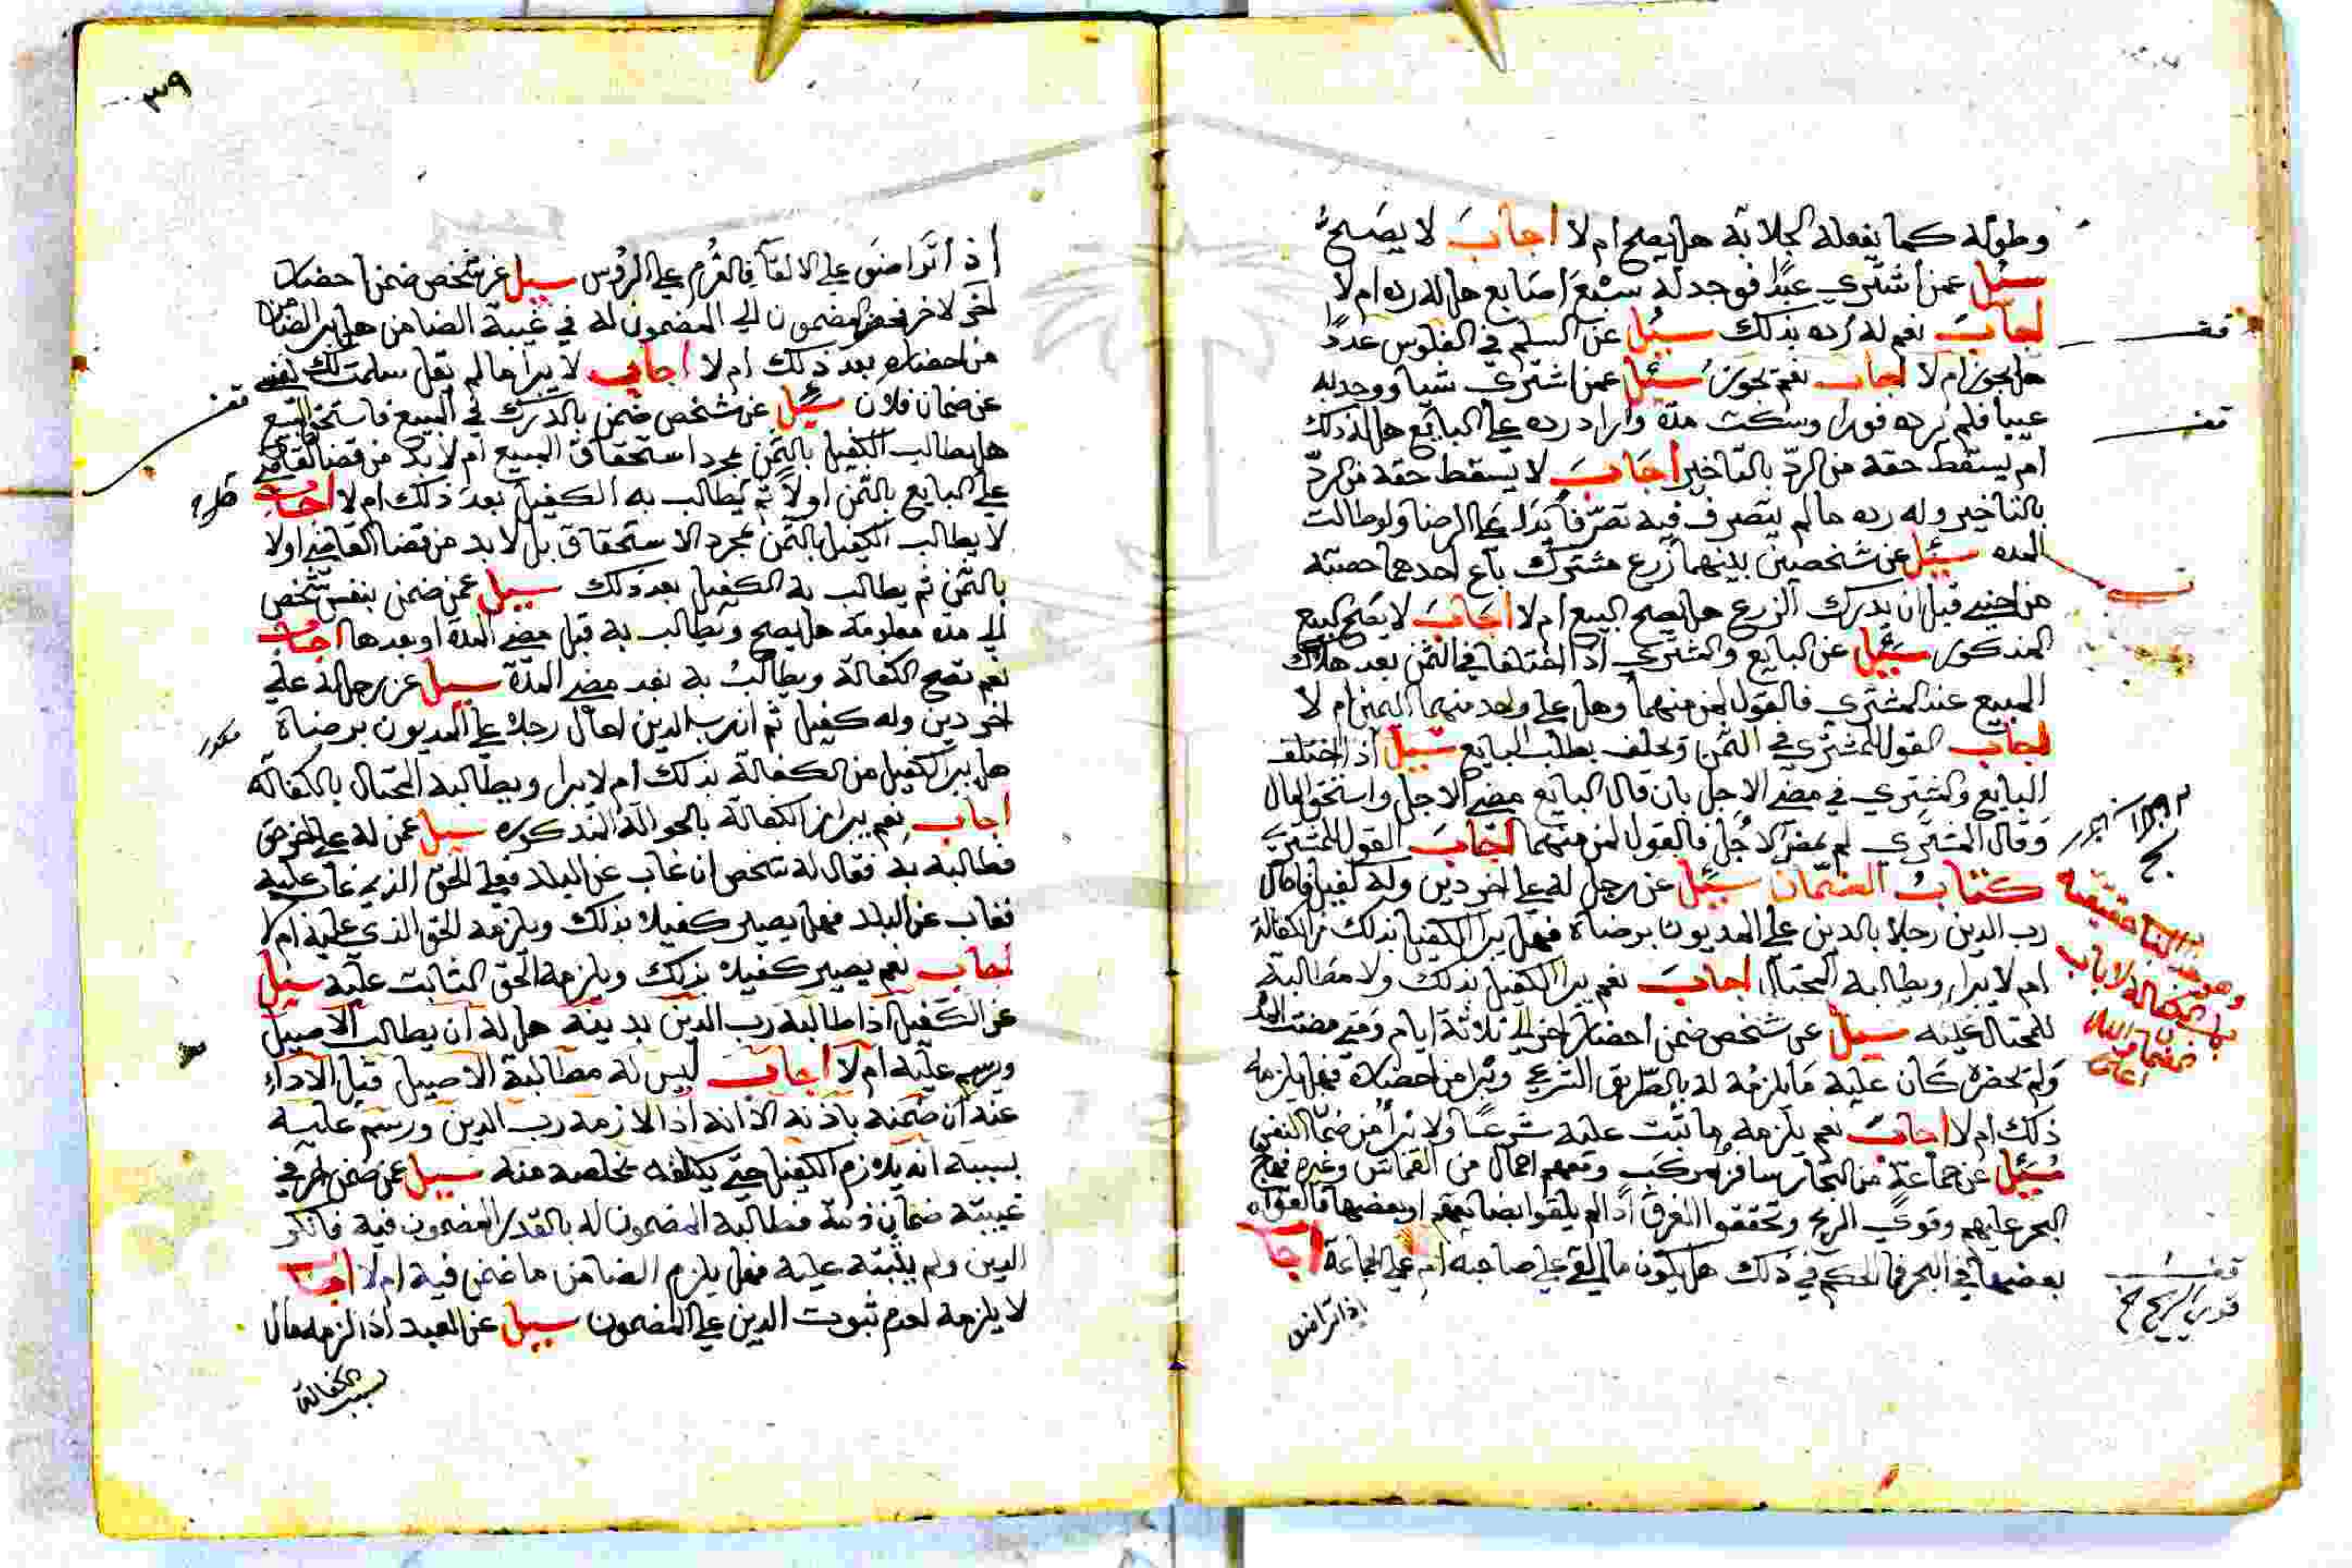 وطوله كما يفعله الجلابة هل يصح ام لا اجاب لا يصح
سئل عمن اشتري عبدا فوجد له سبع اصابع هل له رده ام لا
اجاب نعم له رده بذلك سئل عن السلم في الفلوس عددا
هل يجوز ام لا اجاب نعم يجوز سئل عمن اشتري شيا ووجد به
عيبا فلم يرده فورا وسكت مدة واراد رده علي البايع هل له ذلك
ام يسقط حقه من الرد بالتاخير اجاب لا يسقط حقه من الرد
بالتاخير وله رده ما لم يتصرف فيه تصرفا يدل علي الرضا ولو طالت
المده سئل عن شخصين بينهما زرع مشترك باع احدهما حصته
من اجنبي قبل ان يدرك الزرع هل يصح البيع ام لا اجاب لا يصح البيع
المذكور سئل عن البايع والمشتري اذا اختلفا في الثمن بعد هلاك
المبيع عند المشتري فالقول لمن منهما وهل علي واحد منهما اليمين ام لا
اجاب القول للمشتري في الثمن ويحلف بطلب البايع سئل اذا اختلف
البايع والمشتري في مضي الاجل بان قال البايع مضي الاجل واستحق المال
وقال المشتري لم يمض الاجل فالقول لمن منهما اجاب القول للمشتري
كتاب الضمان سئل عن رجل له علي اخر دين وله كفيل فاحال
رب الدين رجلا بالدين علي المديون برضاه فهل يبرا الكفيل بذلك من الكفالة
ام لا يبرا ويطالبه المحتال اجاب نعم يبرا الكفيل بذلك ولا مطالبة
للمحتال عليه سئل عن شخص ضمن احضار اخر الي ثلاثة ايام ومتي مضت المد
ولم يحضره كان عليه ما يلزمه له بالطريق الشرعي ويبرا من احضاره فهل يلزمه
ذلك ام لا اجاب نعم يلزمه ما ثبت عليه شرعا ولا يبرا من ضمان النفس
سئل عن جماعة من التجار سافروا بمركب ومعهم احمال من القماش وغيره فهاج
البحر عليهم وقوي الريح وتحققوا الغرق اذا لم يلقوا بضايعهم او بعضها فالقوا
بعضها في البحر فما الحكم في ذلك هل يكون ما القي علي صاحبه ام علي الجماعة اجاب
اذا تراضوا
قف
قف
وهو من
باب الكفالة لا باب
الضمان
قف
قوي الريح
٣٩
اذا تراضوا علي الالقا فالغرم علي الروس سئل عن شخص ضمن احضار
اخر لاخر فحضر المضمون الي المضمون له في غيبة الضامن هل يبرا الضامن
من احضاره بعد ذلك ام لا اجاب لا يبرا ما لم يقل سلمت لك نفسي
عن ضمان فلان سئل عن شخص ضمن بالدرك في المبيع فاستحق المبيع
هل يطالب الكفيل بالثمن بمجرد استحقاق المبيع ام لا بد من قضا القاضي
علي البايع بالثمن اولا ثم يطالب به الكفيل بعد ذلك ام لا اجاب
لا يطالب الكفيل بالثمن بمجرد الاستحقاق بل لا بد من قضا القاضي اولا
بالثمن ثم يطالب به الكفيل بعد ذلك سئل عمن ضمن بنفس شخص
الي مدة معلومة هل يصح ويطالب به قبل مضي المدة او بعدها اجاب
نعم تصح الكفالة ويطالب به بعد مضي المدة سئل عن رجل له علي
اخر دين وله كفيل ثم ان رب الدين احال رجلا علي المديون برضاه
هل يبرا الكفيل من الكفالة بذلك ام لا يبرا ويطالبه المحتال بالكفالة
اجاب نعم يبرا من الكفالة بالحوالة المذكوره سئل عمن له علي اخر حق
فطالبه به فقال له شخص ان غاب عن البلد فعلي الحق الذي عليه
فغاب عن البلد فهل يصير كفيلا بذلك ويلزمه الحق الذي عليه ام لا
اجاب نعم يصير كفيلا بذلك ويلزمه الحق الثابت عليه سئل
عن الكفيل اذا طالبه رب الدين بدينه هل له ان يطالب الاصيل
ورسم عليه ام لا اجاب ليس له مطالبة الاصيل قبل الاداء
عنه ان ضمنه باذنه الا انه اذا لازمه رب الدين ورسم عليه
بسببه انه يلازم الكفيل حتي يكلفه بخلصه منه سئل عمن ضمن اخر في
غيبته ضمان ذمة فطالبه المضمون له بالقدر المضمون فيه فانكر
الدين ولم يثبته عليه فهل يلزم الضامن ما ضمن فيه ام لا اجاب
لا يلزمه لعدم ثبوت الدين علي المضمون سئل عن العبد اذا لزمه مال
بسبب الكفالة
قف
مكرر